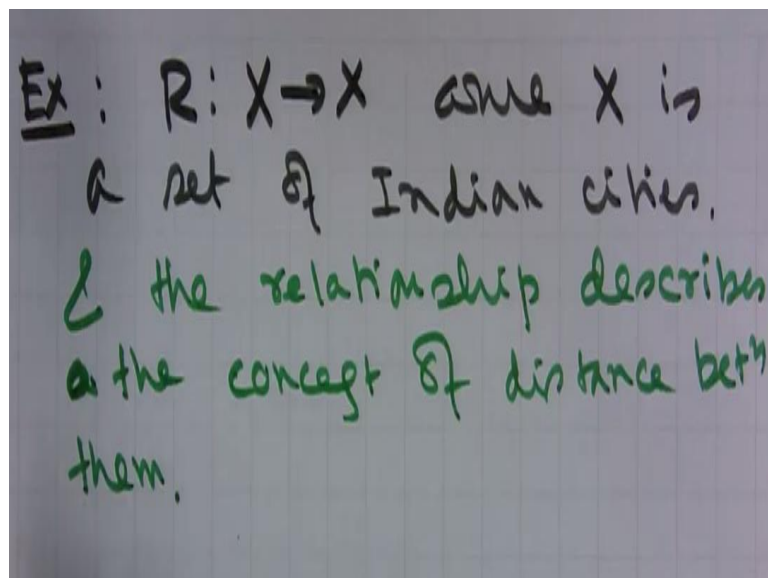 Ex : R: X→X assume X is
a set of Indian cities.
& the relationship describes
the concept of distance betn
them.